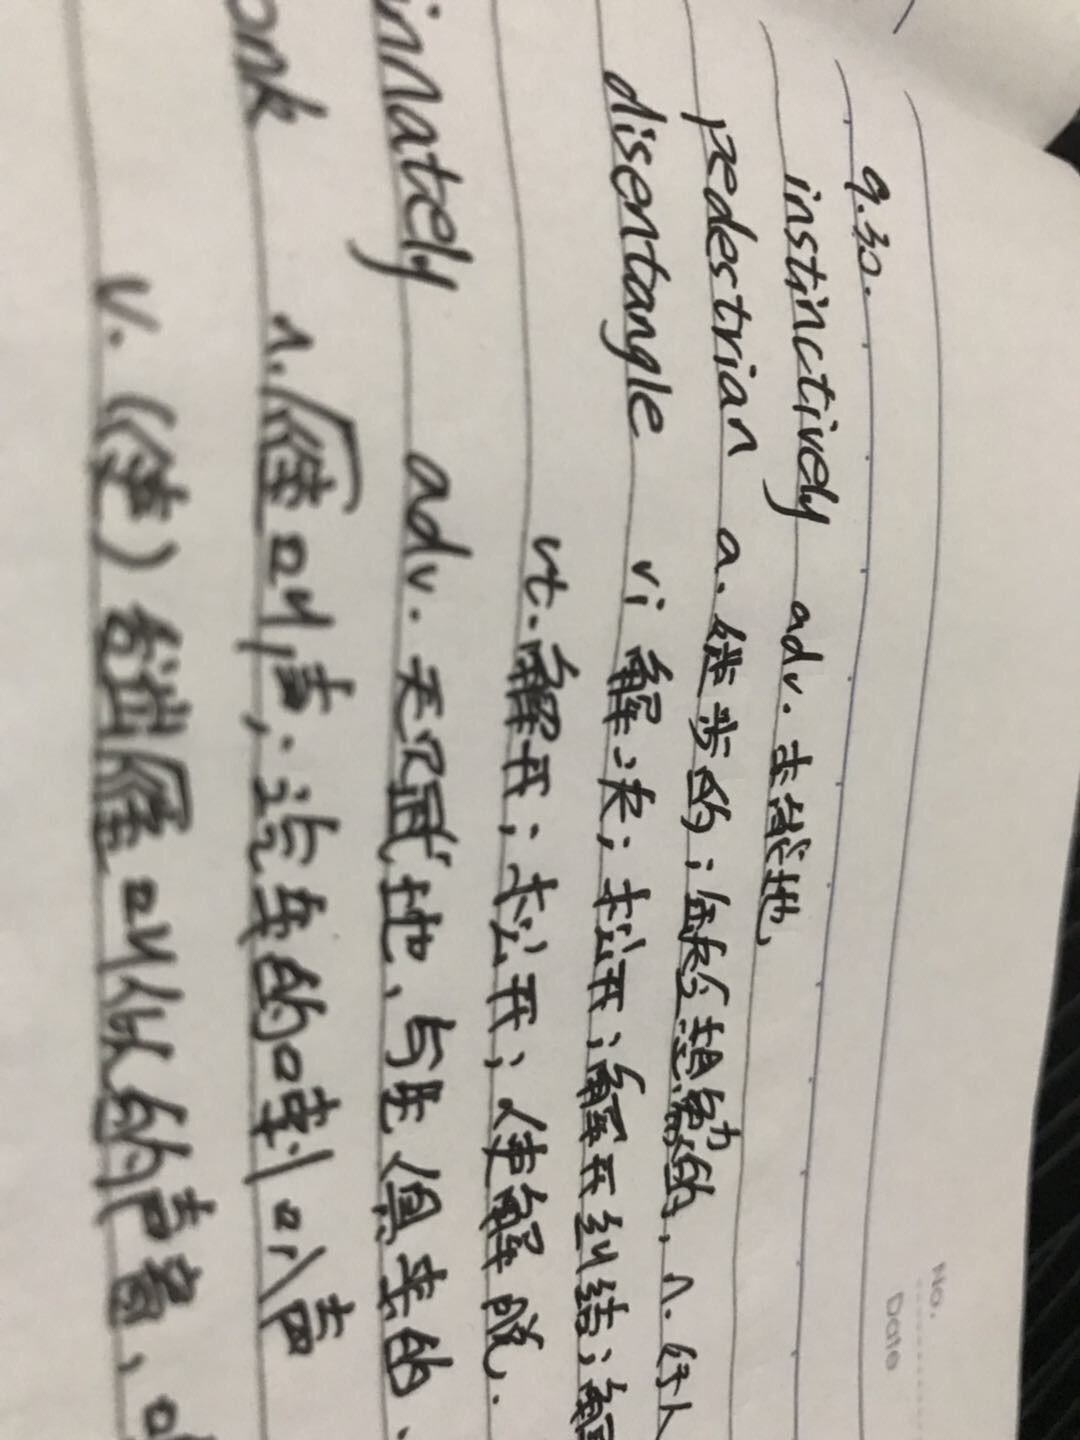 No.
Date
9.30.
instinctively adv. 本能地.
pedestrian a. 徒步的; 缺乏想象力的. n. 行人
disentangle vi 解决; 松开; 解开纠结; 解
vt. 解开; 松开; 使解脱.
innately adv. 天赋地. 与生俱来的.
onk n. 雁叫声; 汽车的喇叭声
v. (使) 发出雁叫似的声音.